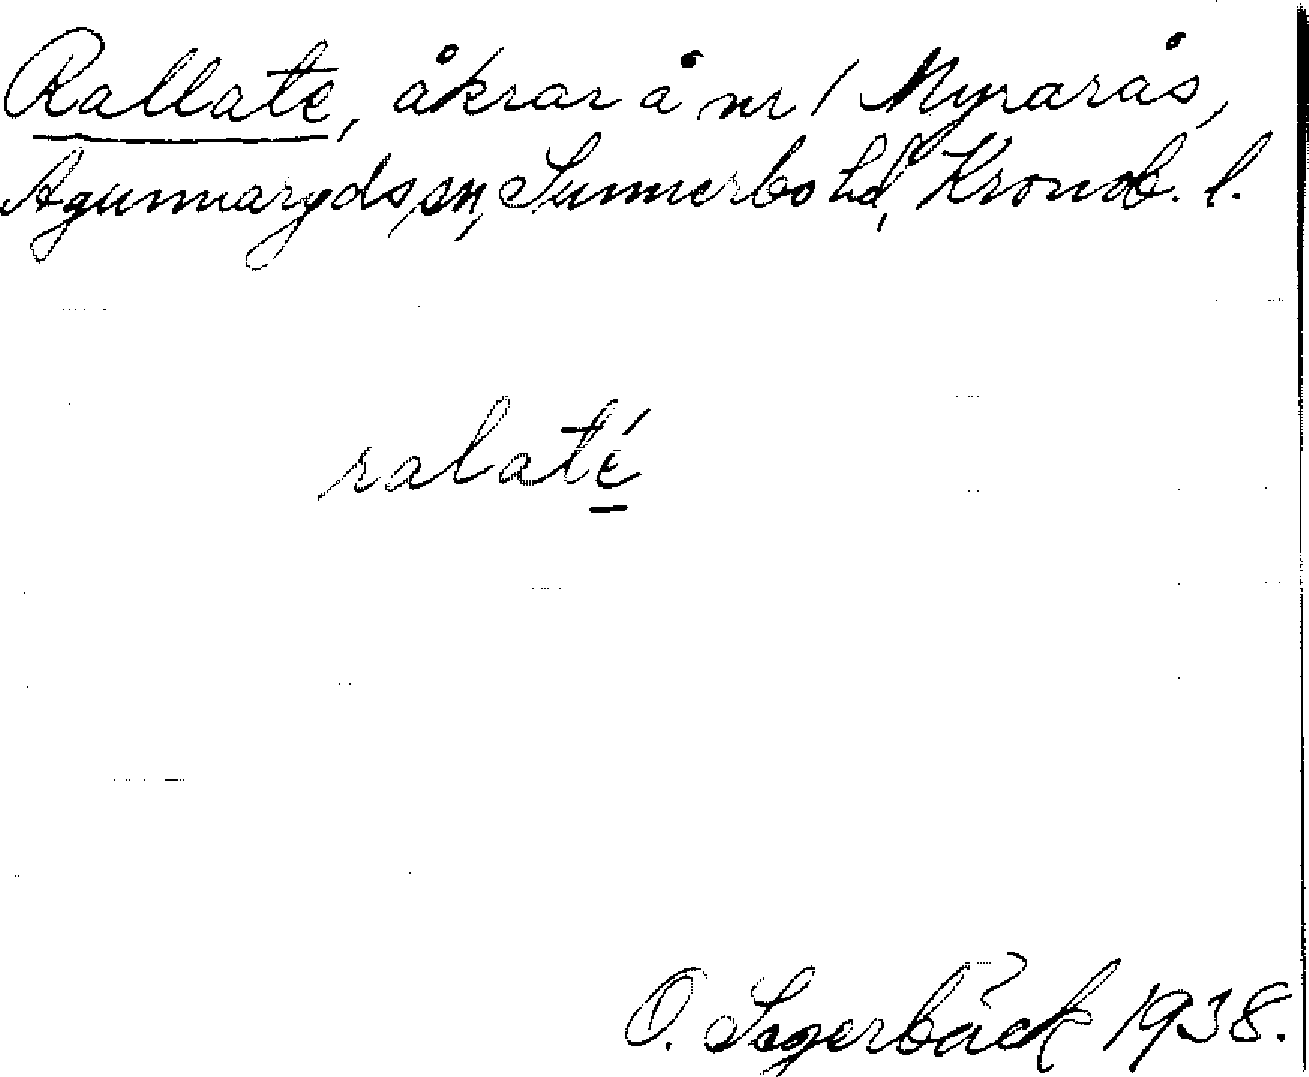 Rallate, åkrar å nr 1 Myrarås,
Agunnaryds sn, Sunnerbo hd, Kronob. l.
ralaté
O. Segerbäck 1938.